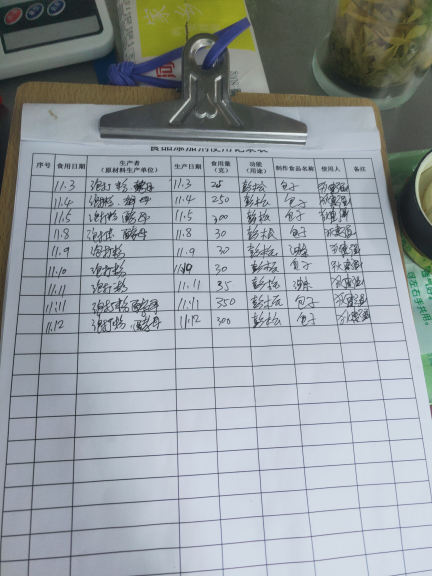 食品添加剂使用记录表
序号 食用日期 生产者（原材料生产单位） 生产日期 食用量（克） 功能（用途） 制作食品名称 使用人 备注
11.3 泡打粉 酵母 11.3 25 彭松 包子
11.4 泡打粉 酵母 11.4 250 彭松 包子
11.5 泡打粉 酵母 11.5 300 彭松 包子
11.8 泡打粉 酵母 11.8 30 彭松 包子
11.9 泡打粉 11.9 30 彭松 油条
11.10 泡打粉 11.10 30 彭松 包子
11.11 泡打粉 11.11 35 彭松 油条
11.11 泡打粉 酵母 11.11 350 彭松 包子
11.12 泡打粉 酵母 11.12 300 彭松 包子